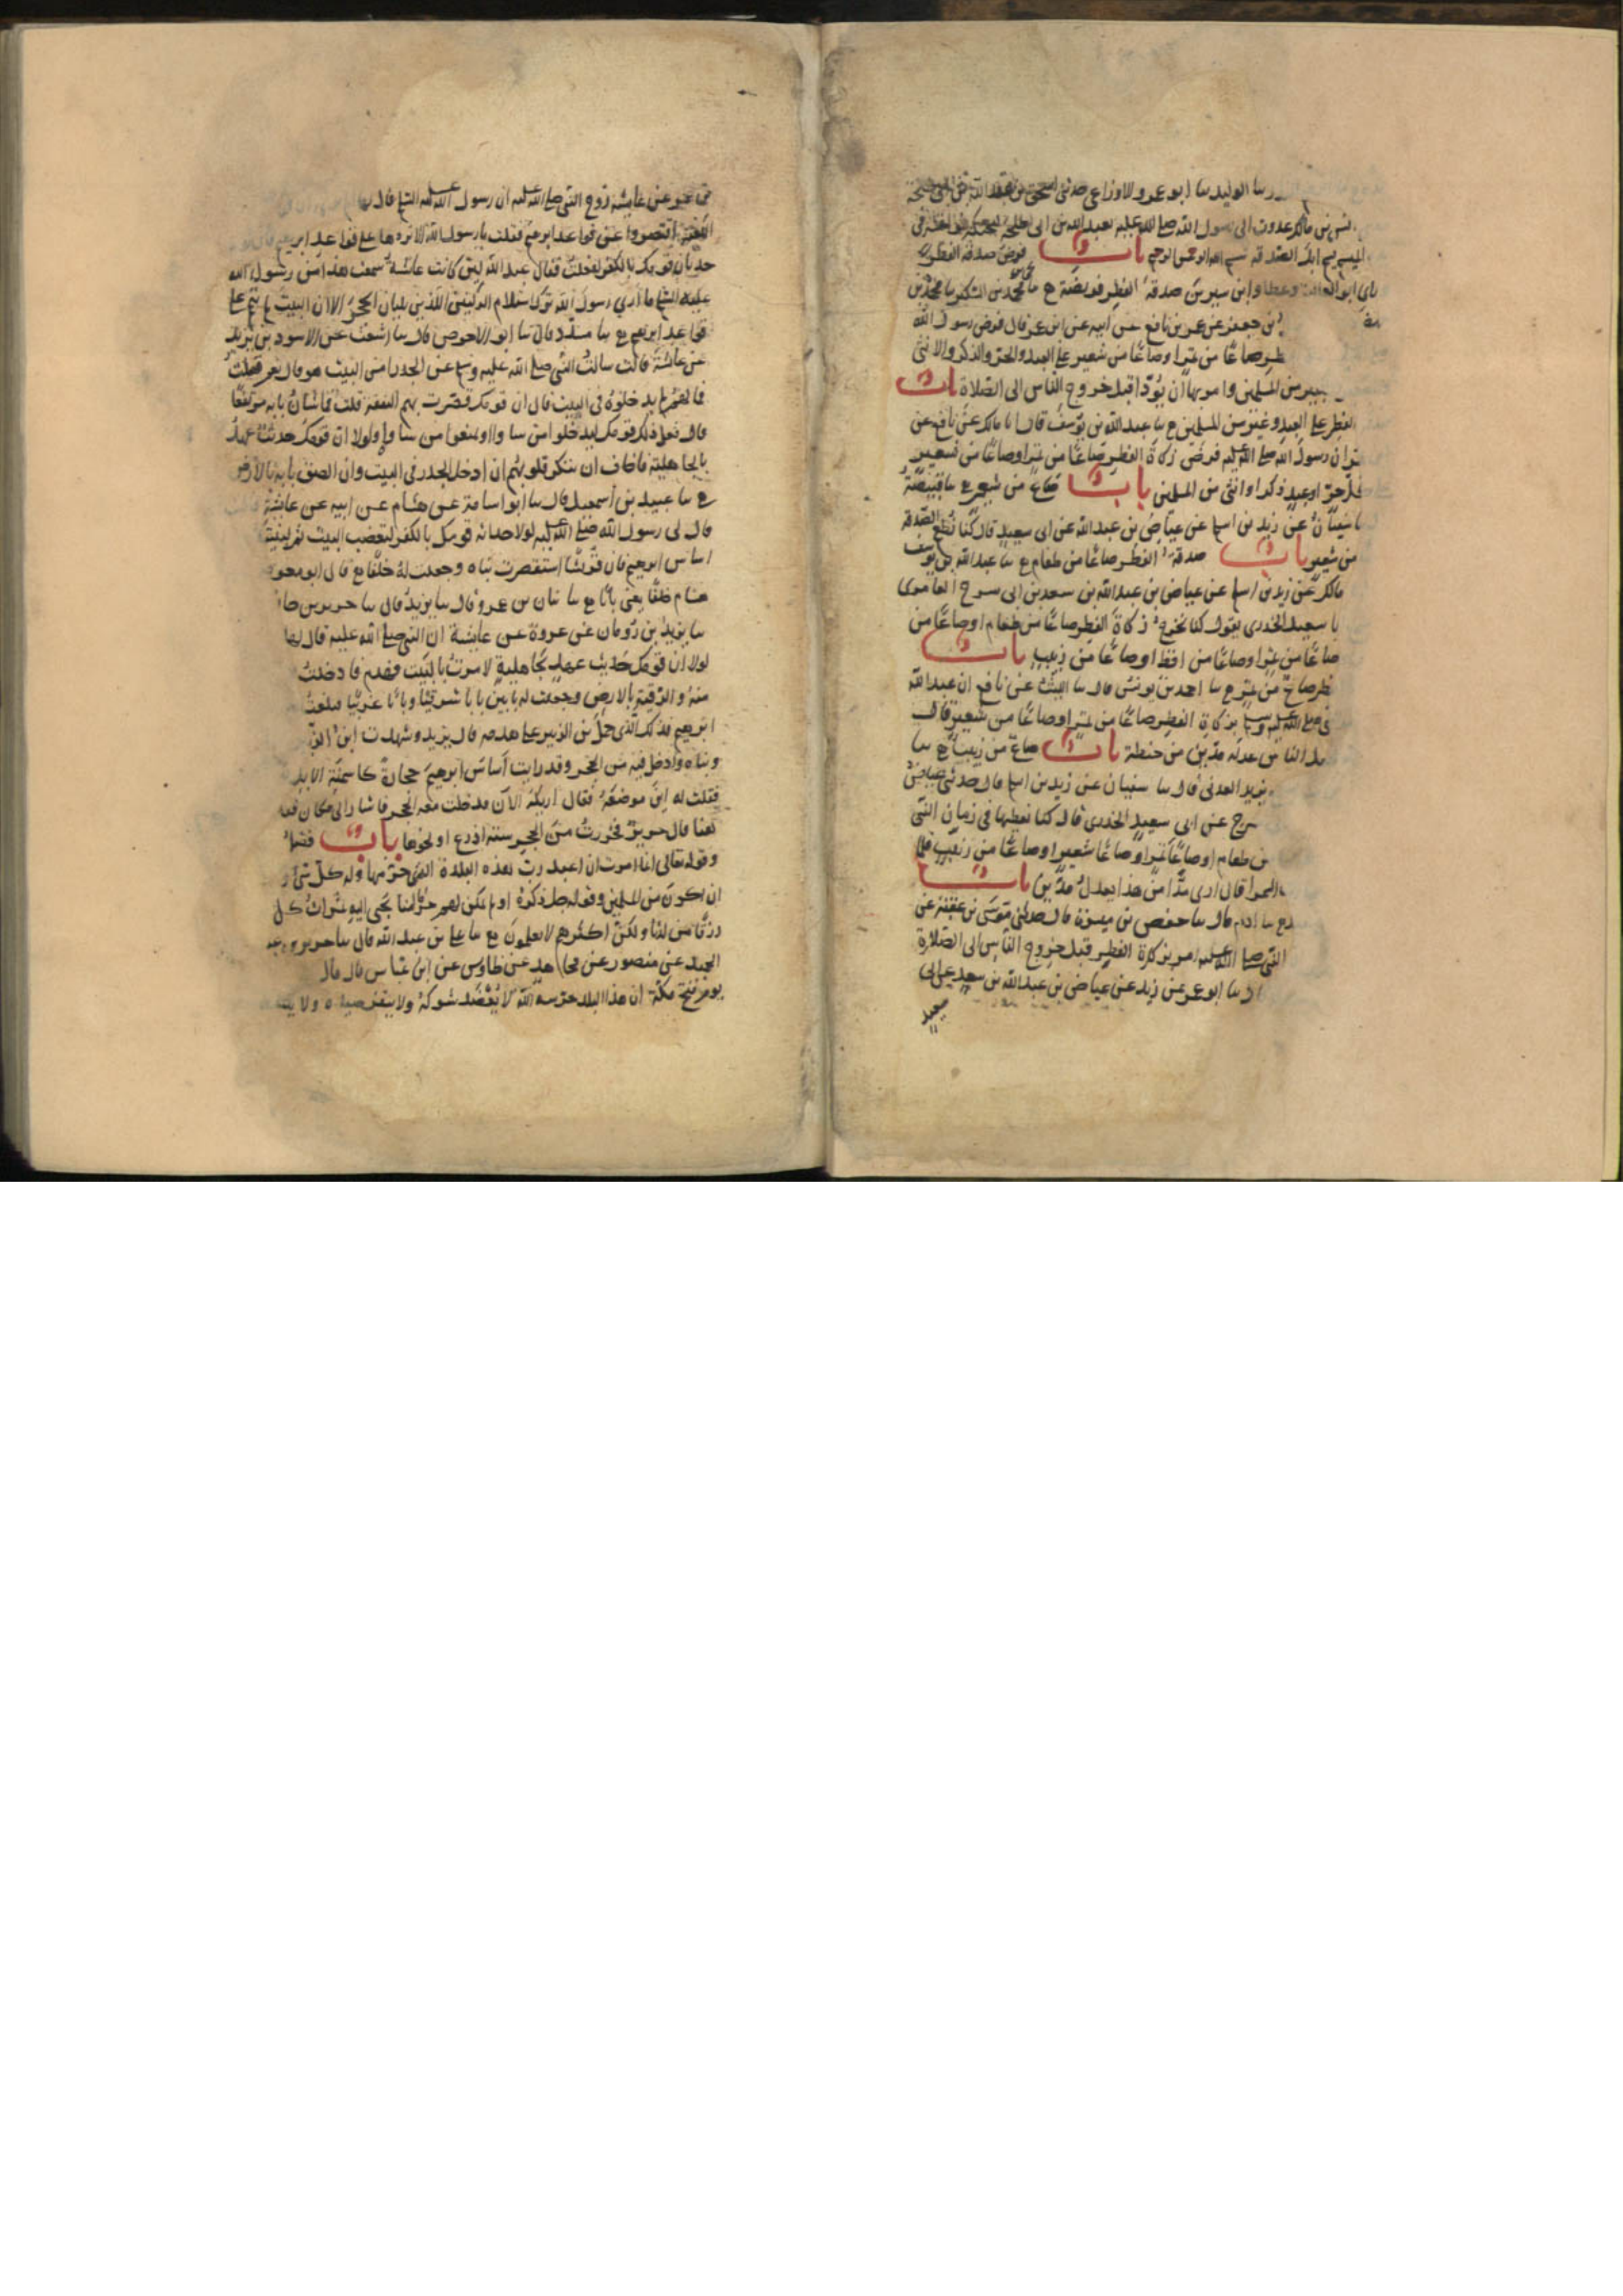 سا الوليد سا ابو عمرو الاوزاعي حدثني اسحق بن عبد الله بن ابي طلحة
انس بن مالك غدوت الى رسول الله صلى الله عليه بعبد الله بن ابي طلحة ليحنكه فوافيته في
الميسم يسم ابل الصدقة بسم الله الرحمن الرحيم باب فرض صدقة الفطر
راى ابو العالية وعطا وابن سيرين صدقة الفطر فريضة ح سا يحيى بن محمد بن السكن سا محمد بن
بن جعفر عن عمر بن نافع عن ابيه عن ابن عمر قال فرض رسول الله
فطر صاعًا من تمر او صاعًا من شعير على العبد والحر والذكر والانثى
كبير من المسلمين وامر بها ان تؤدا قبل خروج الناس الى الصلاة باب
الفطر على العبد وغيره من المسلمين ح سا عبد الله بن يوسف قال انا مالك عن نافع عن
عمر ان رسول الله صلى الله عليه فرض زكاة الفطر صاعًا من تمر او صاعًا من شعير
كل حر او عبد ذكر او انثى من المسلمين باب صاع من شعير ح سا قبيصة
سا سفيان عن زيد بن اسلم عن عياض بن عبد الله عن ابي سعيد قال كنا نطعم الصدقة
من شعير باب صدقة الفطر صاعًا من طعام ح سا عبد الله بن يوسف
مالك عن زيد بن اسلم عن عياض بن عبد الله بن سعد بن ابي سرح العامري
با سعيد الخدري يقول كنا نخرج زكاة الفطر صاعًا من طعام او صاعًا من
صاعًا من تمر او صاعًا من اقط او صاعًا من زبيب باب
فطر صاع من تمر ح سا احمد بن يونس قال سا الليث عن نافع ان عبد الله
بي صلى الله عليه وسلم بزكاة الفطر صاعًا من تمر او صاعًا من شعير قال
الناس عدله مدين من حنطة باب صاع من زبيب ح سا
يزيد العدني قال سا سفيان عن زيد بن اسلم قال حدثني عياض
سرح عن ابي سعيد الخدري قال كنا نعطيها في زمان النبي
من طعام او صاعًا تمر او صاعًا شعير او صاعًا من زبيب فلما
السمرا قال ارى مدًا من هذا يعدل مدين باب
ح سا ادم قال سا حفص بن ميسرة قال حدثني موسى بن عقبة عن
النبي صلى الله عليه امر بزكاة الفطر قبل خروج الناس الى الصلاة
سا ابو عمر عن زيد عن عياض بن عبد الله بن سعد عن ابي
سعيد
عن عائشة زوج النبي صلى الله عليه ان رسول الله صلى الله عليه قال لها
الكعبة اقتصروا عن قواعد ابرهيم فقلت يا رسول الله الا تردها على قواعد ابرهيم قال
حدثان قومك بالكفر لفعلت فقال عبد الله لين كانت عائشة سمعت هذا من رسول الله
عليه ما ارى رسول الله ترك استلام الركنين اللذين يليان الحجر الا ان البيت لم يتم على
قواعد ابرهيم ح سا مسدد قال سا ابو الاحوص قال سا اشعث عن الاسود بن يزيد
عن عائشة قالت سالت النبي صلى الله عليه وسلم عن الجدر امن البيت هو قال نعم قلت
فما لهم لم يدخلوه في البيت قال ان قومك قصرت بهم النفقة قلت فما شان بابه مرتفعًا
قال فعل ذلك قومك ليدخلوا من شاوا ويمنعوا من شاوا ولولا ان قومك حديث عهد
بالجاهلية فاخاف ان تنكر قلوبهم ان ادخل الجدر في البيت وان الصق بابه بالارض
ح سا عبيد بن اسمعيل قال سا ابو اسامة عن هشام عن ابيه عن عائشة
قال لي رسول الله صلى الله عليه لولا حداثة قومك بالكفر لنقضت البيت ثم لبنيته
اساس ابرهيم فان قريشًا استقصرت بناه وجعلت له خلفًا ح قال ابو معوية
هشام خلفًا يعني بابًا ح سا بيان بن عمرو قال سا يزيد قال سا جرير بن حازم
سا يزيد بن رومان عن عروة عن عائشة ان النبي صلى الله عليه قال لها
لولا ان قومك حديث عهد بجاهلية لامرت بالبيت فهدم فادخلت
منه والزقته بالارض وجعلت له بابين بابًا شرقيًا وبابًا غربيًا فبلغت
ابرهيم فذلك الذي حمل بن الزبير على هدمه قال يزيد وشهدت ابن الزبير
وبناه وادخل فيه من الحجر وقد رايت اساس ابرهيم حجارة كاسنمة الابل
فقلت له اين موضعه فقال اريكه الآن فدخلت معه الحجر فاشار الى مكان فقال
هاهنا قال جرير فحزرت من الحجر ستة اذرع او نحوها باب فضل
وقوله تعالى انما امرت ان اعبد رب هذه البلدة الذي حرمها وله كل شيء
ان اكون من المسلمين وقوله جل ذكره اولم نمكن لهم حرمًا آمنا يجبى اليه ثمرات كل
رزقًا من لدنا ولكن اكثرهم لا يعلمون ح سا علي بن عبد الله قال سا جرير بن عبد
الحميد عن منصور عن مجاهد عن طاوس عن ابن عباس قال قال
يوم فتح مكة ان هذا البلد حرمه الله لا يعضد شوكه ولا ينفر صيده ولا يلتقط